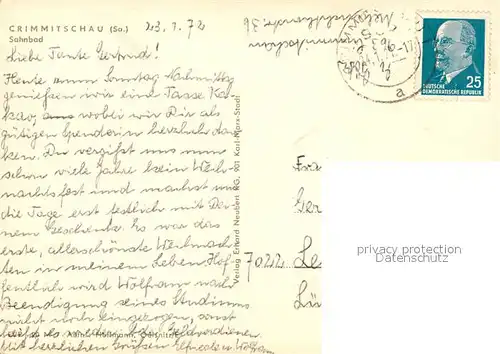 CRIMMITSCHAU (Sa.)
Sahnbad
23.1.72
Liebe Tante Gertrud!
Heute zum Sonntag Nachmittag
genießen wir eine Tasse Ka-
kao, wobei wir Dir als
gütigen Spenderin herzlich dan-
ken. Du vergißt uns nun
schon viele Jahre kein Weih-
nachtsfest und machst uns
die Tage erst festlich mit Dei-
nem Geschenk. Es war das
erste, allerschönste Weihnach-
ten in meinem Leben. Hof-
fentlich wird Wolfram nach
Beendigung seines Studiums
nicht noch eingezogen, sonst
Mit herzlichen Grüßen Elfriede u. Wolfram
Verlag Erhard Neubert KG, 901 Karl-Marx-Stadt
Crimmitschau
a
DEUTSCHE
DEMOKRATISCHE REPUBLIK
25
Fra
Ger
7022 Le
Lü
privacy protection
Datenschutz